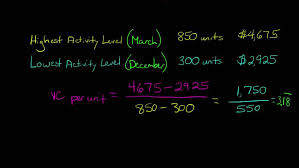 Highest Activity Level (March) 850 units $4,675
Lowest Activity Level (December) 300 units $2,925
VC per unit = 4675-2925 / 850-300 = 1,750 / 550 = 3.18